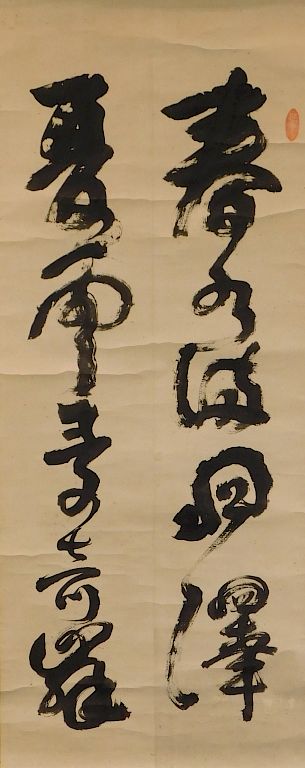 春水満四澤
夏雲多奇峯